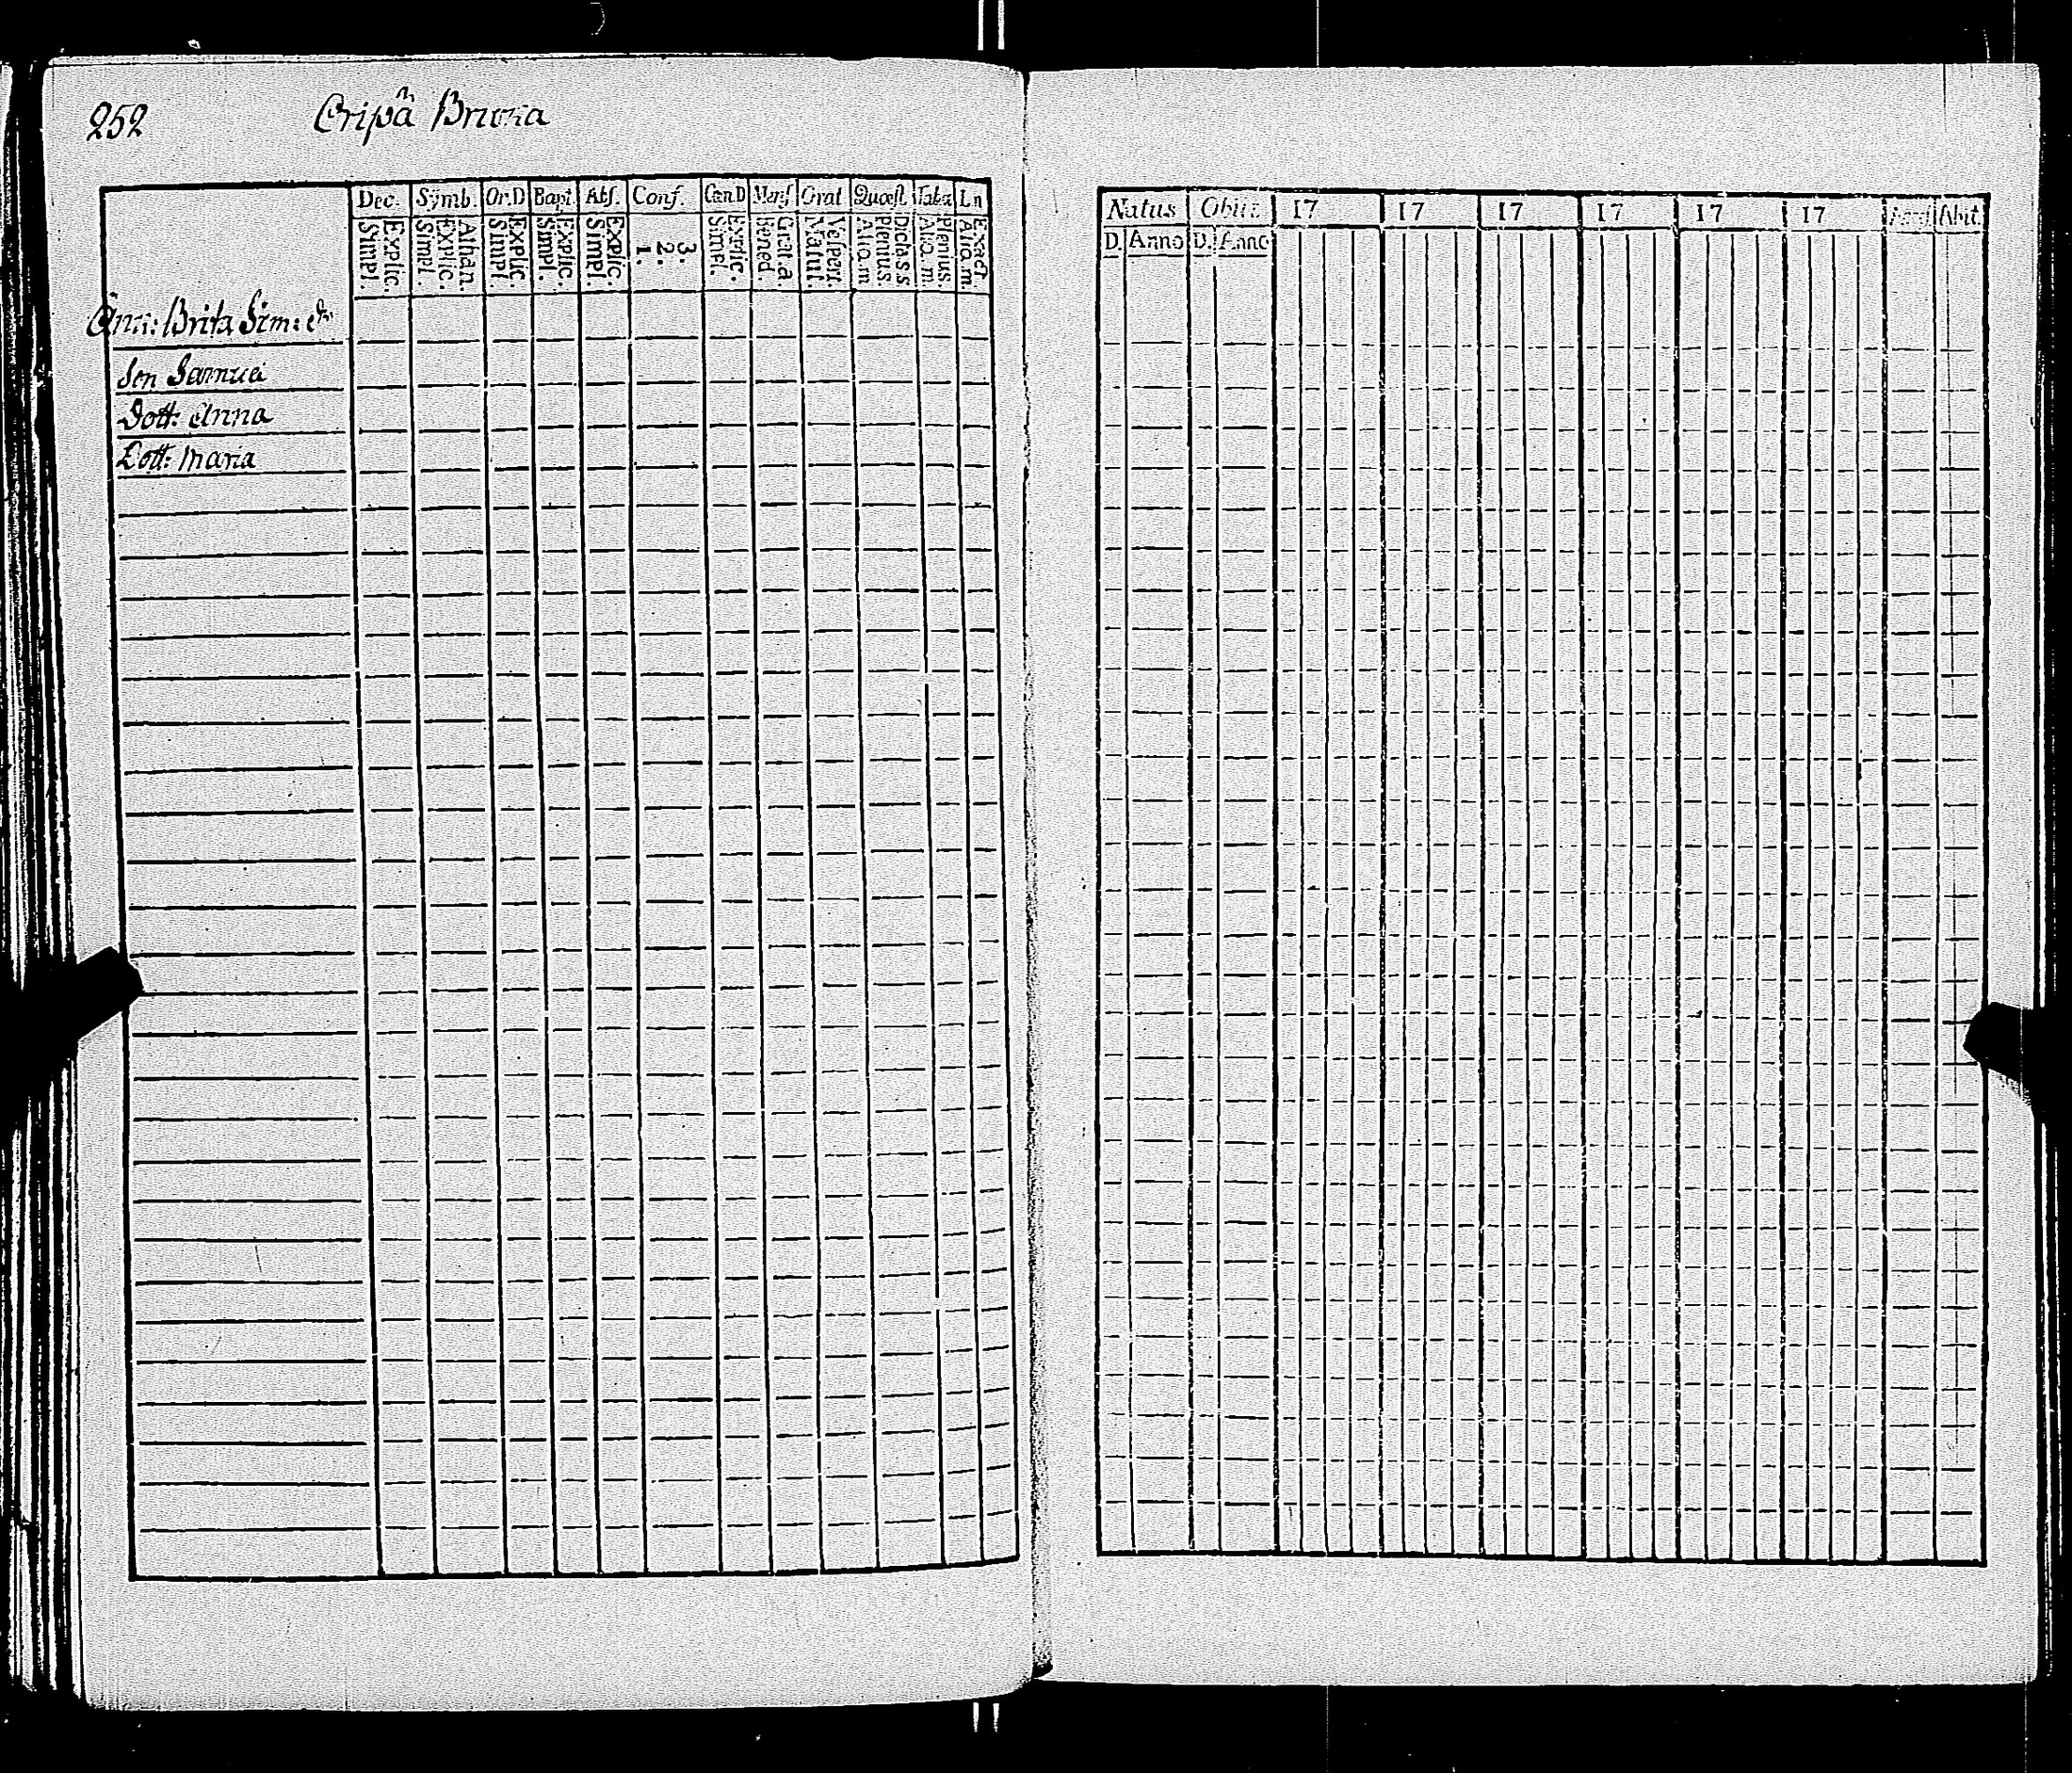 252 Cripå Bruua
Dec. Symb. Or.D Bapt. Abs. Conf. Cœn.D Mens Orat Quæst. Tabæ Ln
Simpl. Explic. Simpl. Explic. Athan. Simpl. Explic. Simpl. Explic. Simpl. Explic. 1. 2. 3. Simpl. Explic. Bened. Grat.a. Matut. Vesper. Aliq.m Plenius. Dicta.s.s Aliq.m Plenius. Aliq.m Exact
Ann: Brita Sim: dr
Son Samuel
Dott: Anna
Dott: Maria
Natus Obiit 17 17 17 17 17 17 Abit.
D. Anno D. Anno